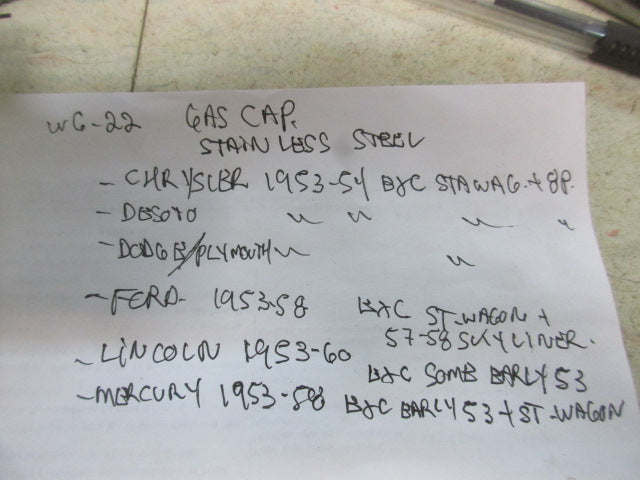 WG-22 GAS CAP.
STAINLESS STEEL
- CHRYSLER 1953-54 EXC STAWAG. + 8P.
- DESOTO " " " "
- DODGE/PLYMOUTH " "
- FORD - 1953-58 EXC ST-WAGON +
57-58 SKYLINER.
- LINCOLN 1953-60 EXC SOME EARLY 53
- MERCURY 1953-58 EXC EARLY 53 + ST-WAGON